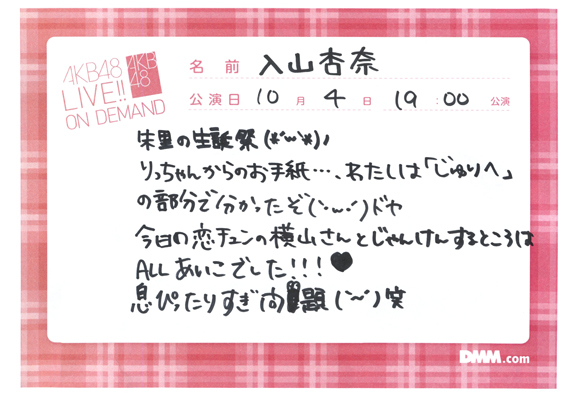 AKB48
LIVE!!
ON DEMAND
AKB
48
名 前 入山杏奈
公演日 10 月 4 日 19 : 00 公演
朱里の生誕祭(*´ー`*)ﾉ
りっちゃんからのお手紙…、わたしは「じゅりへ」
の部分で分かったぞ(`･ー･´)ドヤ
今日の恋チュンの横山さんとじゃんけんするところは
ALLあいこでした!!!♥
息ぴったりすぎ問題(´ー`)笑
DMM.com